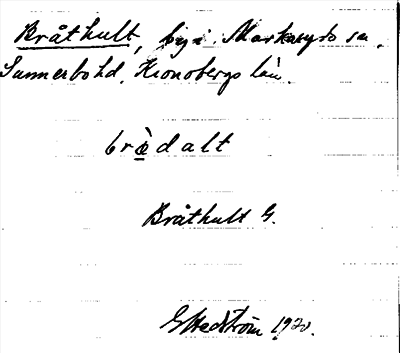 Bråthult, by i Markaryds sn.
Sunnerbo hd, Kronobergs län.
brà̤dalt
Bråthult G.
G Hedström 1920.